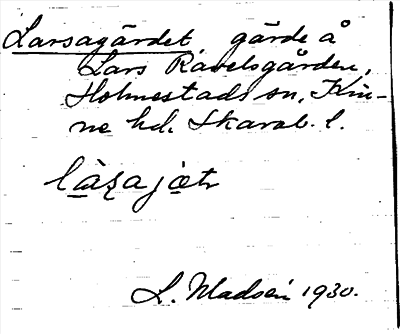 Larsagärdet, gärde å
Lars Råvelsgården,
Holmestads sn, Kin-
ne hd. Skarab. l.
L. Madsén 1930.